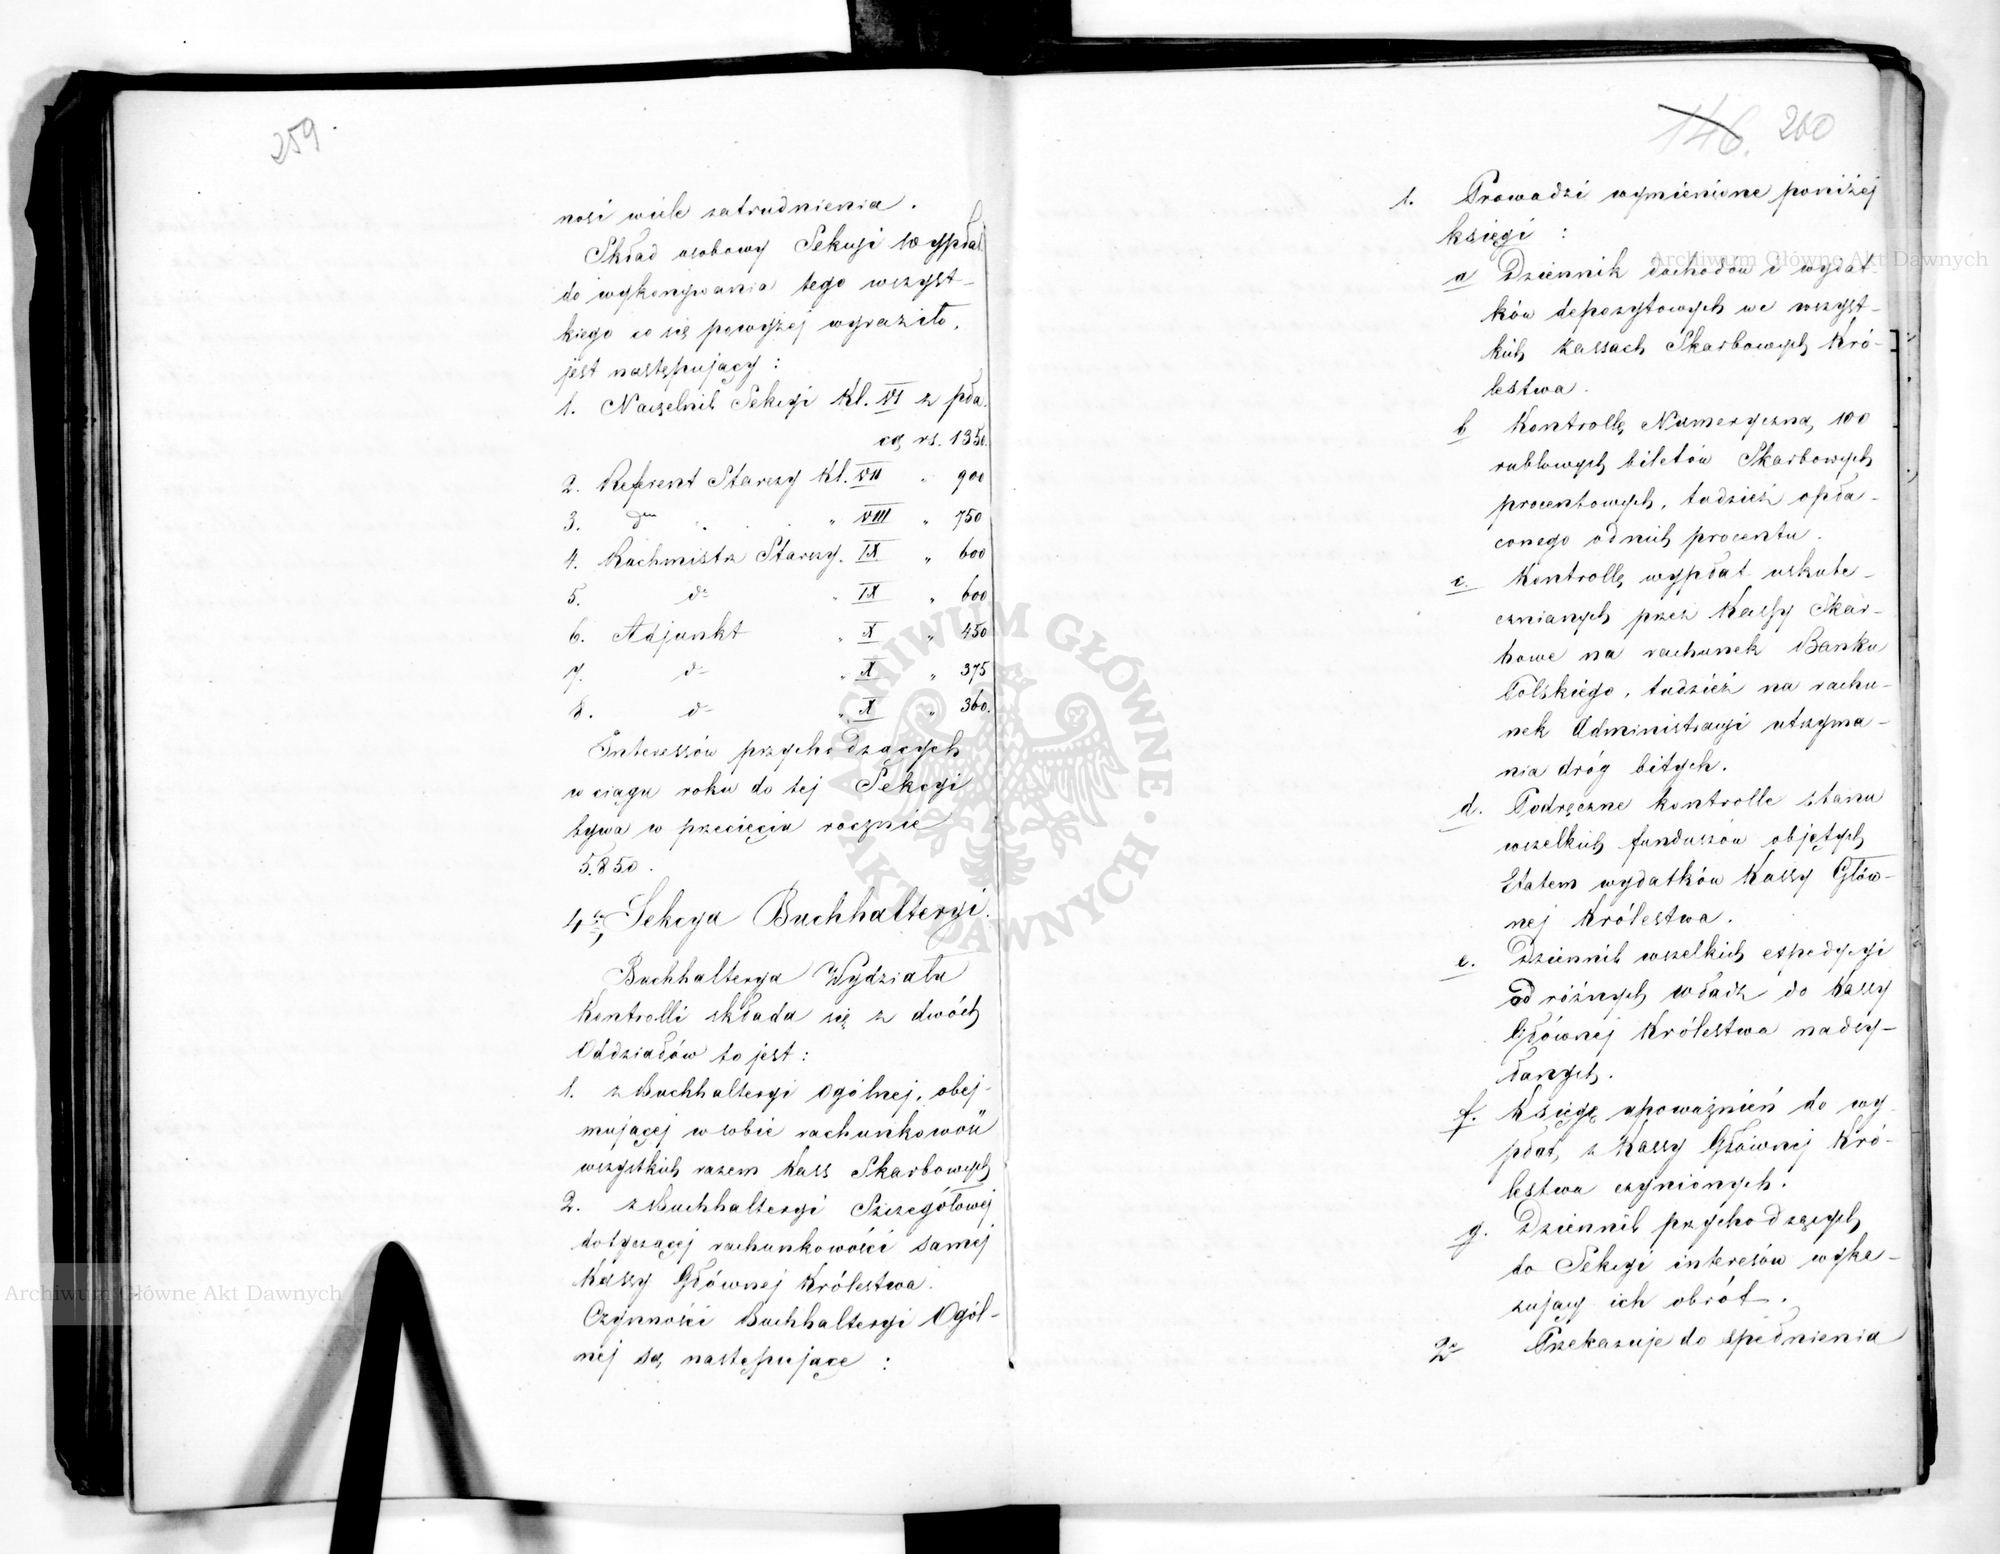 259.
nosi wiele zatrudnienia.
Skład osobowy Sekcyi Wypłat
do wykonywania tego wszyst-
kiego co się powyżej wyraziło,
jest następujący:
1. Naczelnik Sekcyi Kl. VI z płа-
cą rs. 1350.
2. Referent Starszy Kl. VII " 900
3. dtto " " VIII " 750
4. Rachmistrz Starszy. IX " 600
5. do " IX " 600
6. Adjunkt " X " 450
7. do " X " 375
8. do " X " 360.
Interessów przychodzących
w ciągu roku do tej Sekcyi
bywa w przecięciu rocznie
5.850.
4. Sekcya Buchhalteryi.
Buchhalterya Wydziału
Kontrolli składa się z dwóch
Oddziałów to jest:
1. z Buchhalteryi Ogólnej, obej-
mującej w sobie rachunkowość
wszystkich razem Kass Skarbowych
2. z Buchhalteryi Szczegółowej
dotyczącej rachunkowości samej
Kassy Głównej Królestwa.
Czynności Buchhalteryi Ogól-
nej są następujące:
146. 260
1. Prowadzi wymienione poniżej
księgi:
a Dziennik dochodów i wydat-
ków depozytowych we wszyst-
kich Kassach Skarbowych Kró-
lestwa.
b Kontrollę Numeryczną 100
rublowych biletów Skarbowych
procentowych, tudzież opła-
conego od nich procentu.
c. Kontrollę wypłat uskute-
cznianych przez Kassy Skar-
bowe na rachunek Banku
Polskiego, tudzież na rachu-
nek Administracyi utrzyma-
nia dróg bitych.
d. Podręczne kontrolle stanu
wszelkich funduszów objętych
Etatem wydatków Kassy Głów-
nej Królestwa.
e. Dziennik wszelkich expedycyi
od różnych władz do Kassy
Głównej Królestwa nadsy-
łanych.
f. Księgę upoważnień do wy-
płat, z Kassy Głównej Kró-
lestwa czynionych.
g. Dziennik przychodzących
do Sekcyi interesów wyka-
zujący ich obrót.
2e Przekazuje do spełnienia
ARCHIWUM GŁÓWNE AKT DAWNYCH
Archiwum Główne Akt Dawnych
Archiwum Główne Akt Dawnych